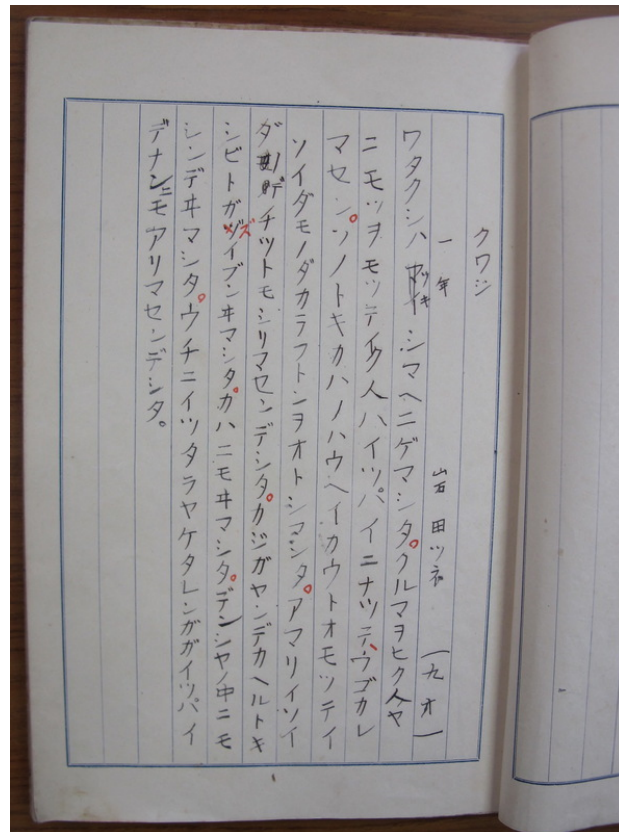 クワジ
一年 岩田ツネ (九才)
ワタクシハツキシマヘニゲマシタ。クルマヲヒク人ヤ
ニモツヲモツテイク人ハイツパイニナツテ、ウゴカレ
マセン。ソノトキカハノハウヘイカウトオモツテイ
ソイダモノダカラフトンヲオトシマシタ。アマリイソイ
ダ チツトモシリマセンデシタ。カジガヤンデカヘルトキ
シビトガズイブンヰマシタ。カハニモヰマシタ。デンシヤノ中ニモ
シンデヰマシタ。ウチニイツタラヤケタレンガガイツパイ
デナンニモアリマセンデシタ。